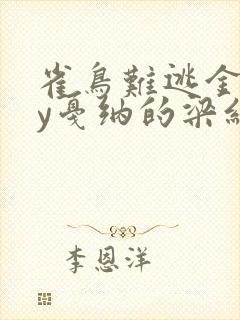 雀鳥難逃金
y戛纳的梁紅
李恩洋